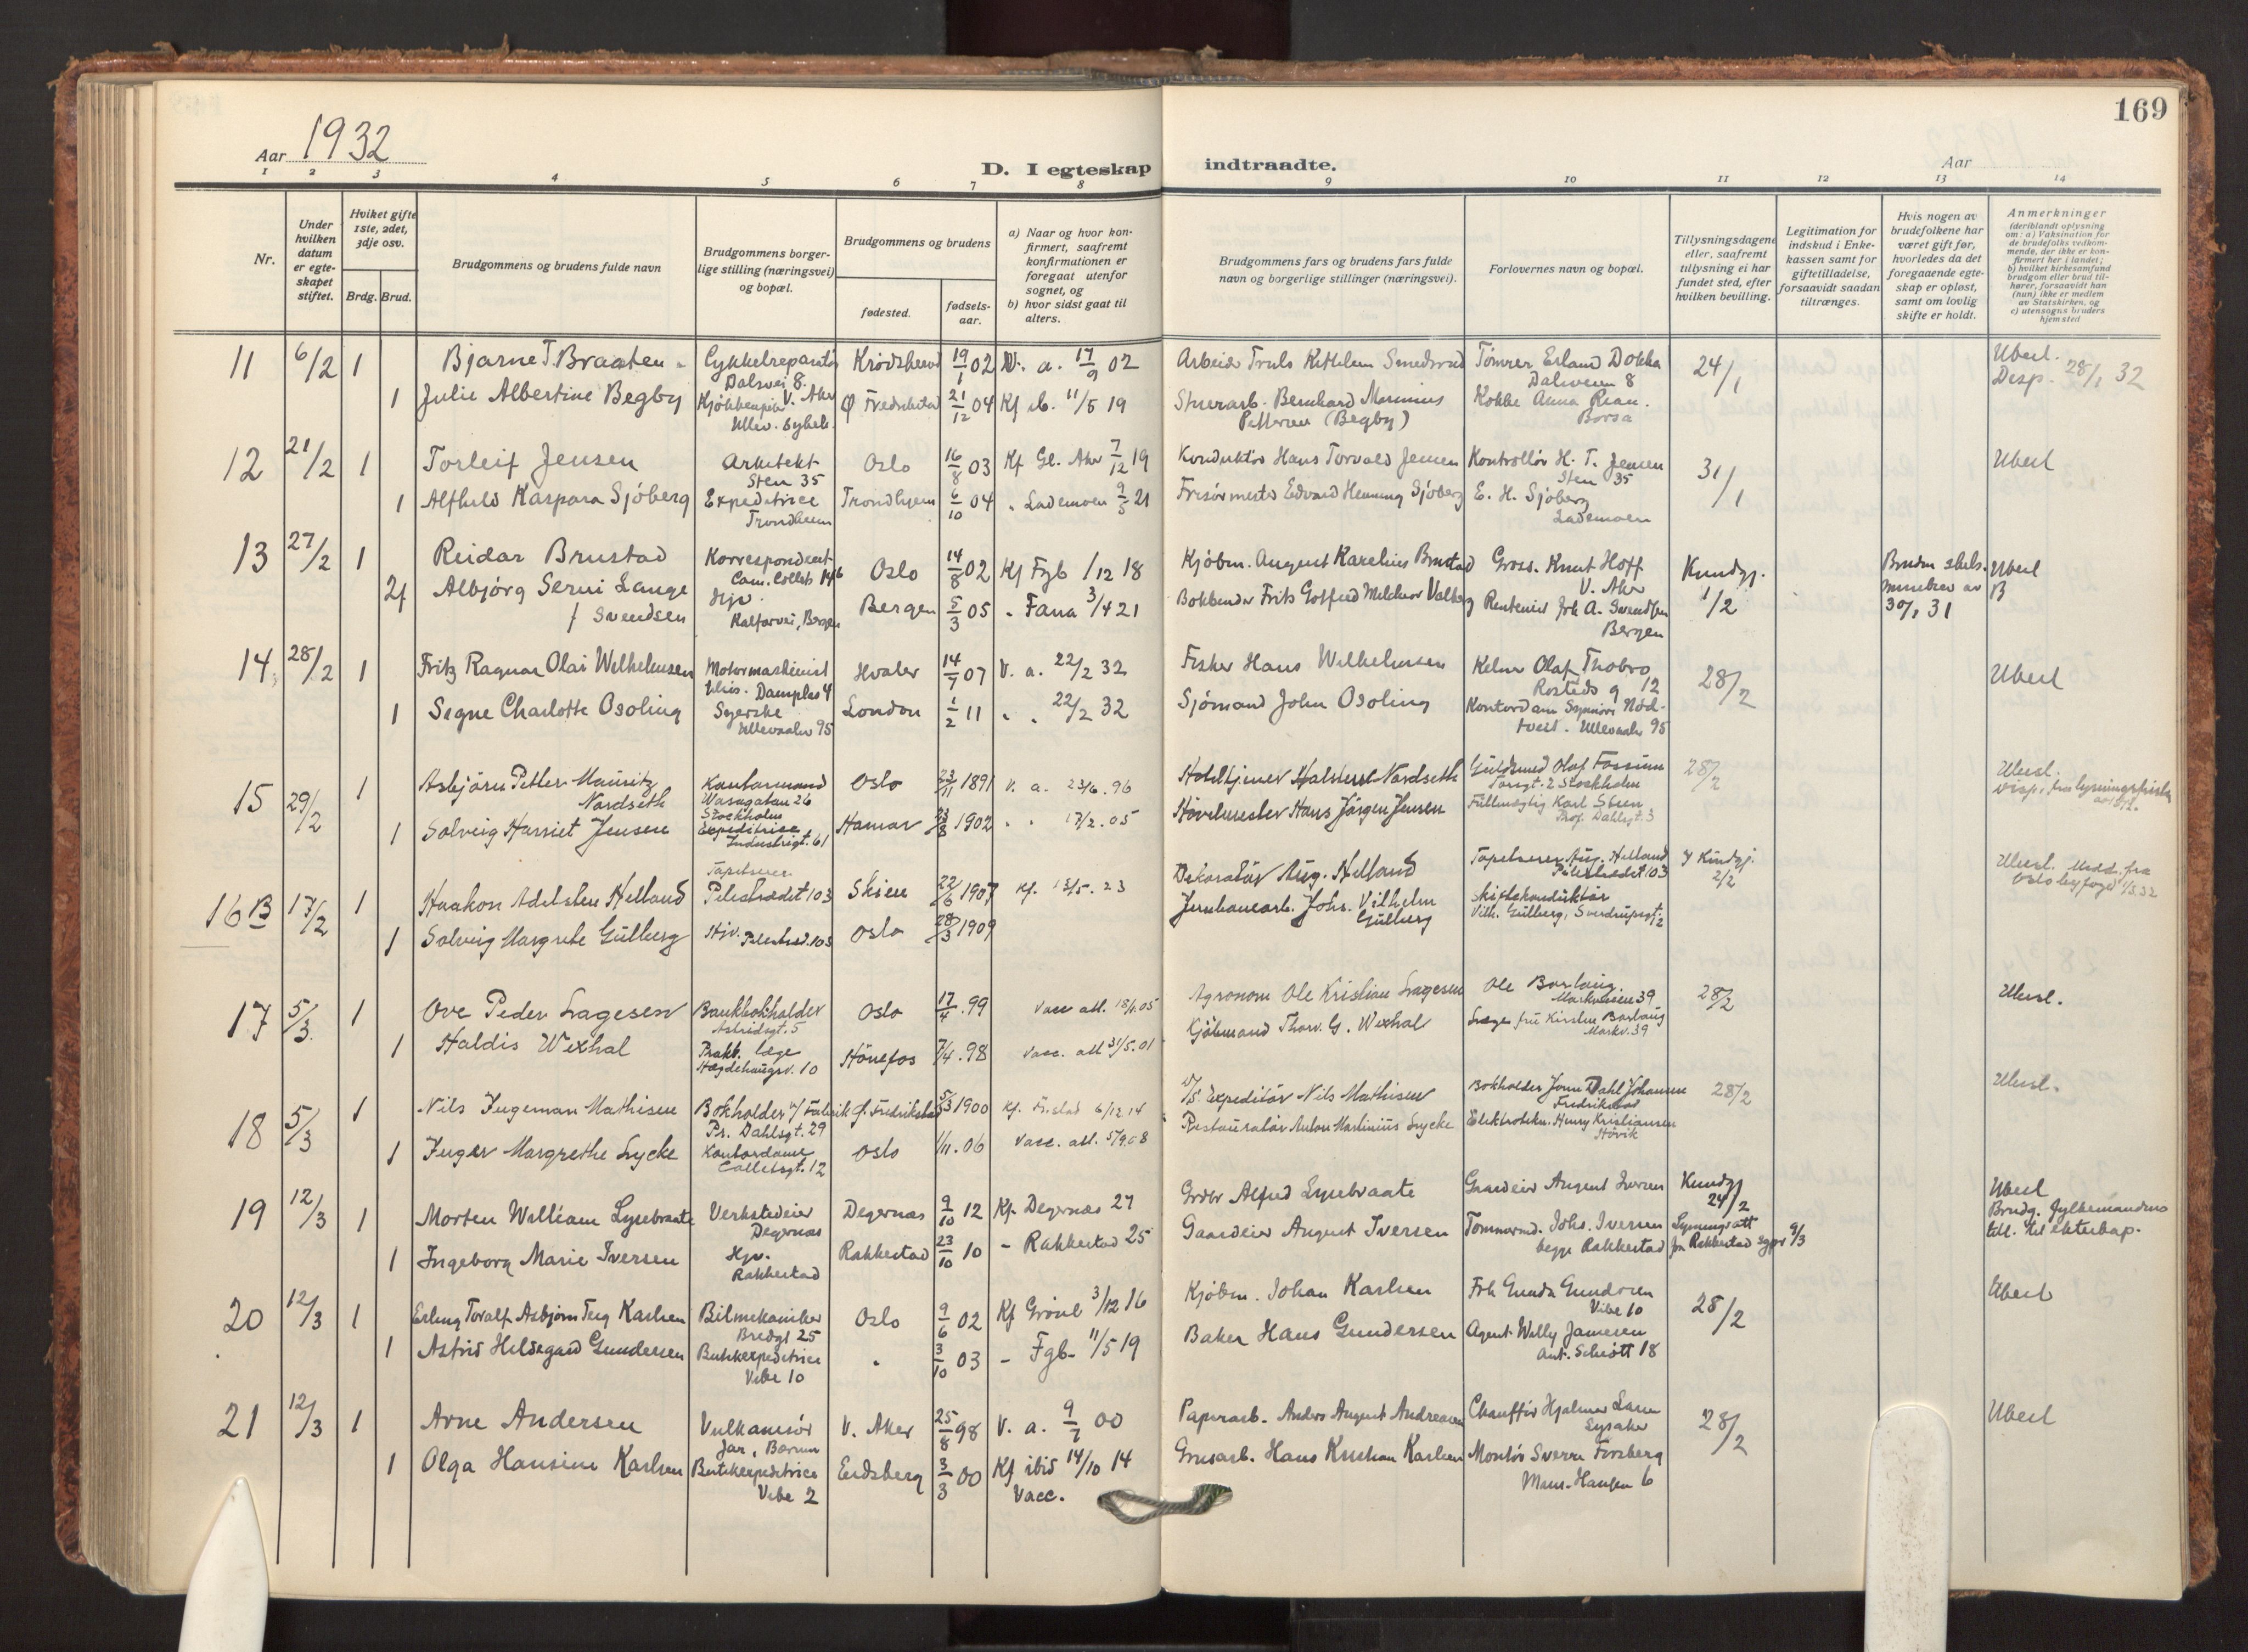 169
Aar 1932
D. I egteskap indtraadte.
Aar
1 2 3 4 5 6 7 8 9 10 11 12 13 14
Nr.
Under hvilken datum er egte-skapet stiftet.
Hviket gifte 1ste, 2det, 3dje osv.
Brdg. Brud.
Brudgommens og brudens fulde navn
Brudgommens borger-lige stilling (næringsvei) og bopæl.
Brudgommens og brudens
fødested.
fødsels-aar.
a) Naar og hvor kon-firmert, saafremt konfirmationen er foregaat utenfor sognet, og
b) hvor sidst gaat til alters.
Brudgommens fars og brudens fars fulde navn og borgerlige stillinger (næringsvei).
Forlovernes navn og bopæl.
Tillysningsdagene eller, saafremt tillysning ei har fundet sted, efter hvilken bevilling.
Legitimation for indskud i Enke-kassen samt for giftetilladelse, forsaavidt saadan tiltrænges.
Hvis nogen av brudefolkene har været gift før, hvorledes da det foregaaende egte-skap er opløst, samt om lovlig skifte er holdt.
Anmerkninger (deriblandt oplysning om: a) Vaksination for de brudefolks vedkom-mende, der ikke er kon-firmert her i landet; b) hvilket kirkesamfund brudgom eller brud til-hører, forsaavidt han (hun) ikke er medlem av Statskirken, og c) utensogns bruders hjemsted
11 6/2 1 Bjarne T. Braaten Cykkelreparatør Dalsvei 8. V. Aker 19/1 02 V. a. 17/9 02 Arbeider Truls Tømrer Erland Dokka Dalsveien 8 24/1 Uberl. Disp. 28/1 32
1 Julie Albertine Begby Ø Fredrikstad 21/12 04 Kf ib. 11/5 19 Bernhard Marinius Pettersen (Begby) Kokke Anna
12 21/2 1 Torleif Jensen Arkitekt Sten 35 Oslo 16/8 03 Kf Gl. Aker 7/12 19 Konduktør Hans Torvald Jensen Kontrollør H. T. Jensen Sten 35 31/1 Uberl
1 Alfhild Kaspara Sjöberg Expeditrice Trondheim Trondhjem 6/10 04 " Lademoen 9/5 21 Frisörmester Edvard Henning Sjöberg E. H. Sjöberg Lademoen
13 27/2 1 Reidar Brustad Korrespondent Cam. Colletts 14b Oslo 14/8 02 Kf Fgb 1/12 18 Kjöbm. August Karelius Brustad Gross. Knut Hoff V. Aker Kundgj. 1/2 Bruden skils. av 30/1 31 Uberl B
2f Albjörg Serui Lange f Svendsen Hjv. Kalfarvei, Bergen Bergen 5/3 05 " Fana 3/4 21 Bokbinder Frits Gotfred Melchior Rentenist Joh A. Svendsen Bergen
14 28/2 1 Fritz Ragnar Olai Wilhelmsen Motormaskinist Hvaler 14/7 07 V. a. 22/2 32 Fisker Hans Wilhelmsen Kelner Olaf Thobro Rosteds g 12 28/2 Uberl
1 Signe Charlotte Osoling Syerske Ullevaalsv 95 London 1/2 11 " " 22/2 32 Sjömand John Osoling Kontordame Ullevaalsv 95
15 29/2 1 Asbjörn Petter Mauritz Nordseth Kontormand Wasagatan 26 Stockholm Oslo 1891 V. a. 23/6. 96 Halsten Nordseth Guldsmed Olaf Fossum Torsgt. 2 Stockholm 28/2 Uberl. Disp. fra lysningsfristen
1 Solveig Harriet Jensen Expeditrice Industrigt. 61 Hamar 1902 " " 17/2. 05 Hans Jörgen Jensen Fullmægtig Karl Steen Prof. Dahlsgt. 3
16 B 17/2 1 Haakon Adelsten Helland Tapetserer Pilestrædet 103 Skien 22/6 1907 Kf. 13/5. 23 Dekoratör Aug. Helland Tapetserer Aug. Helland Pilestrædet 103 Kundgj. 2/2 Uberl. Medd. fra Oslo byfogd
1 Solveig Margrete Gulberg Hjv. Pilestræd. 103 Oslo 28/3 1909 Jernbanearb. Johs. Vilhelm Gulberg Skiftekonduktör Vilh. Gulberg, Sverdrupsgt.
17 5/3 1 Ove Peder Lagesen Bankbokholder Astridsgt. 5 Oslo 17/4. 99 Vacc att. 18/4. 05 Agronom Ole Kristian Lagesen Ole Borlaug Markveien 39 28/2 Uberl.
1 Haldis Wexhal Prakt. læge Hægdehaugsv. 10 Hönefos 7/4. 98 Vacc. att 31/5. 01 Kjöbmand Thorv. G. Wexhal Læge fru Kirsten Borlaug Markv. 39
18 5/3 1 Nils Ingeman Mathisen Bokholder Pr. Dahlsgt. 29 Fredrikstad 1900 Kf. 6/12 14 Expeditör Nils Mathisen Bokholder Dahl Johansen Fredrikstad 28/2 Uberl.
1 Inger Margrethe Lycke Kontordame Colletsgt. 12 Oslo 1/11. 06 Vacc. att. 5/9. 08 Restauratör Anton Martinius Lycke Elektrotekn. Henry Kristiansen Hövik
19 12/3 1 Morten William Lysebraate Verkstedeier Degernæs Degernæs 9/10 12 Kf. Degernæs 27 Grdbr Alfred Lysebraate Gaardeier August Iversen Kundgj 24/2 Uberl Brudg. fylkesmandens till. til ekteskap.
1 Ingeborg Marie Iversen Hjv. Rakkestad Rakkestad 23/10 10 - Rakkestad 25 Gaardeier August Iversen Tömmermd. Johs. Iversen begge Rakkestad Lysningsatt fra Rakkestad sgpr 9/3
20 12/3 1 Erling Toralf Asbjörn Karlsen Bilmekaniker Bredgt 25 Oslo 9/6 02 Kf Grönl 3/12 16 Kjöbm. Johan Karlsen Frk Gunda Gundersen Vibe 10 28/2 Uberl
1 Astrid Hildegard Gundersen Butikkexpeditrice Vibe 10 " 3/10 03 - Fgb- 11/5 19 Baker Hans Gundersen Agent Willy Jansen Ant. Schiött 18
21 12/3 1 Arne Andersen Vulkanisör Jar, Bærum V. Aker 25/8 98 V. a. 9/7 00 Papirarb. Anders August Andreassen Chaufför Hjalmar Lysaker 28/2 Uberl
1 Olga Hansine Karlsen Butikkexpeditrice Vibe 2 Eidsberg 3/3 00 Kf ibid 14/10 14 Vacc. Grusarb. Hans Kristian Karlsen Montör Sverre Forsberg 6